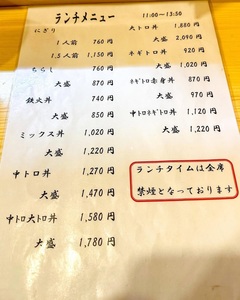 ランチメニュー
11:00〜13:50
にぎり
1人前 760円
1.5人前 1,150円
ちらし 760円
大盛 870円
鉄火丼 740円
大盛 850円
ミックス丼 1,020円
大盛 1,220円
中トロ丼 1,270円
大盛 1,470円
中トロ大トロ丼 1,580円
大盛 1,780円
大トロ丼 1,880円
大盛 2,090円
ネギトロ丼 900円
大盛 1,000円
ネギトロ赤身丼 870円
大盛 970円
中トロネギトロ丼 1,120円
大盛 1,220円
ランチタイムは全席
禁煙となっております